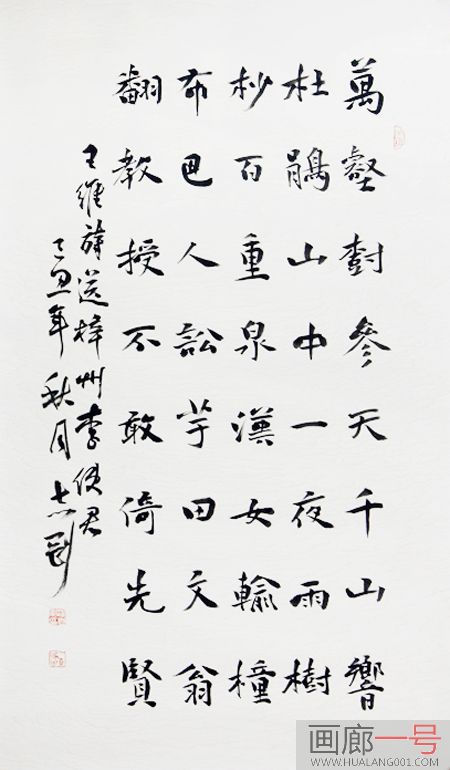 萬壑樹參天千山響
杜鵑山中一夜雨樹
杪百重泉漢女輸橦
布巴人訟芋田文翁
翻教授不敢倚先賢
王維詩送梓州李使君
己丑年秋月志剛
画廊一号
WWW.HUALANG001.COM